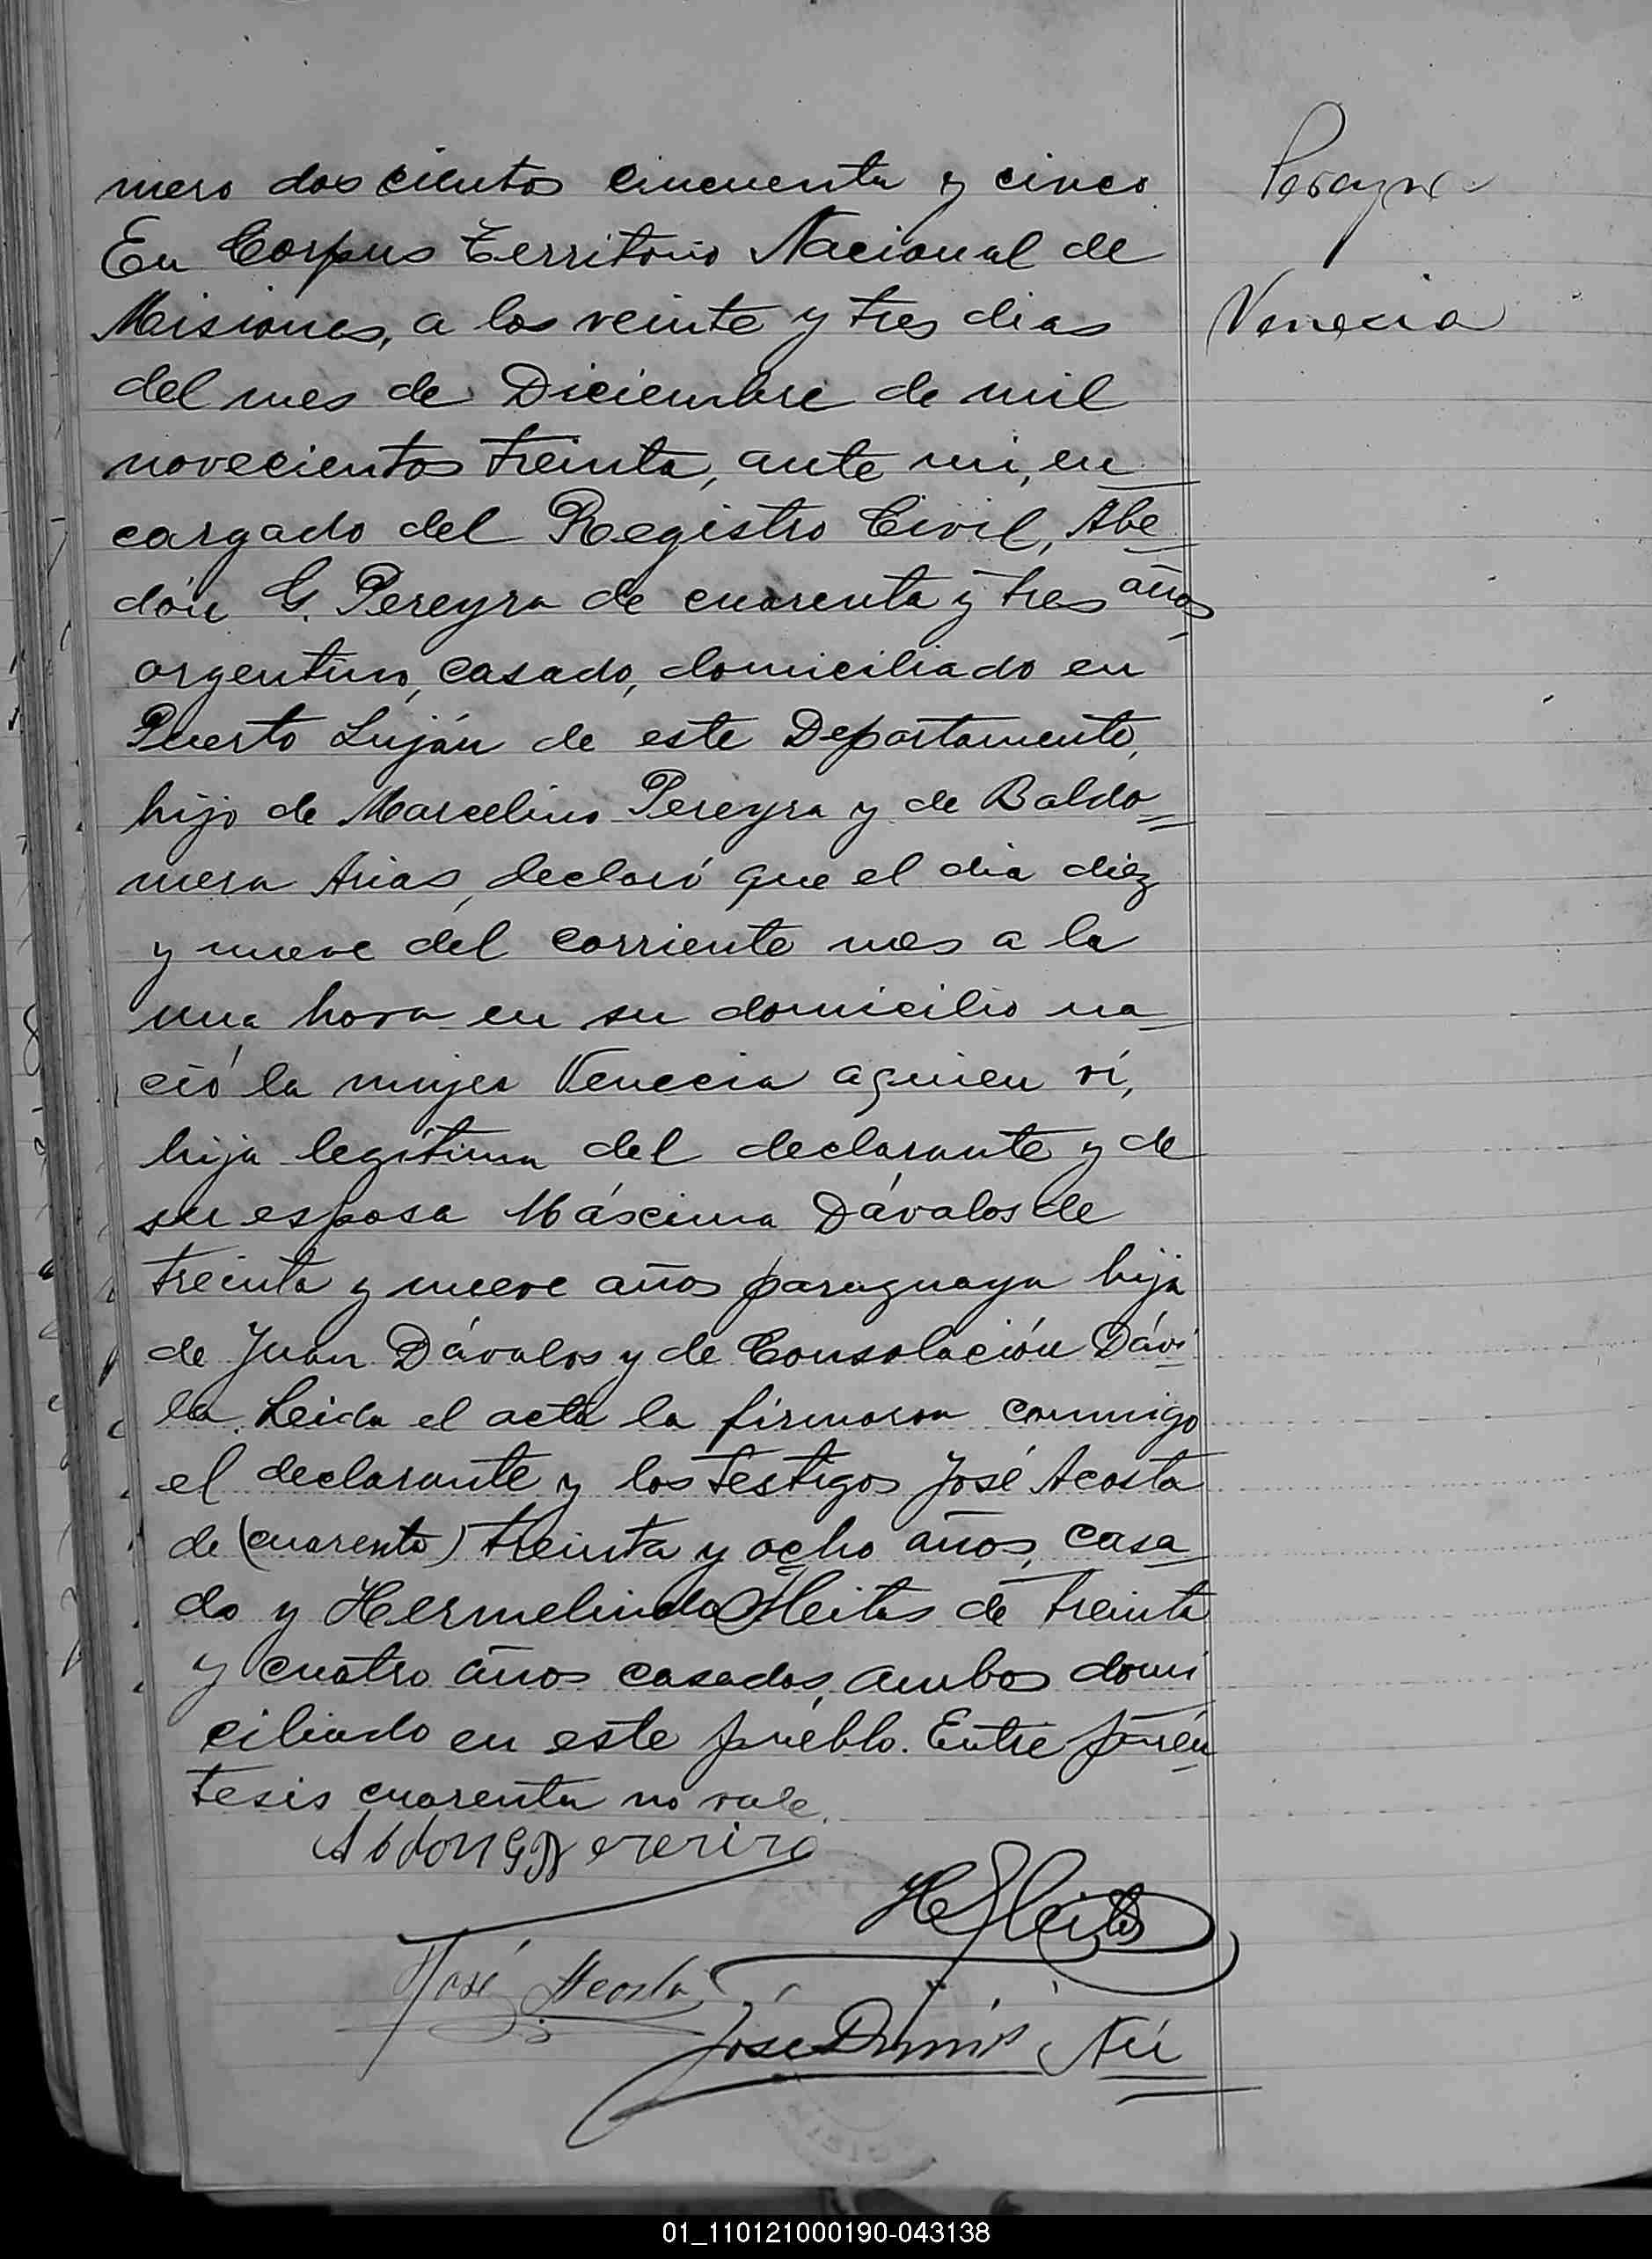 mero doscientos cincuenta y cinco
Pereyra
En Corpus Territorio Nacional de
Misiones, a los veinte y tres dias
Venecia
del mes de Diciembre de mil
novecientos treinta, ante mi, en
cargado del Registro Civil, Abe
dón G. Pereyra de cuarenta y tres años
argentino, casado, domiciliado en
Puerto Luján de este Departamento,
hijo de Marcelino Pereyra y de Baldo=
mera Arias, declaró que el dia diez
y nueve del corriente mes a la
una hora en su domicilio na
ció la mujer Venecia aquien ví,
hija legítima del declarante y de
su esposa Máxima Dávalos de
treinta y nueve años paraguaya hija
de Juan Dávalos y de Consolación Dávi
la. Leida el acta la firmaron conmigo
el declarante y los testigos José Acosta
de (cuarenta) treinta y ocho años, casa
do y Hermelindo Fleitas de treinta
y cuatro años casados, ambos domi
ciliado en este pueblo. Entre parén
tesis cuarenta no vale.
Abdon G Pereira
H Fleitas
José Acosta
José